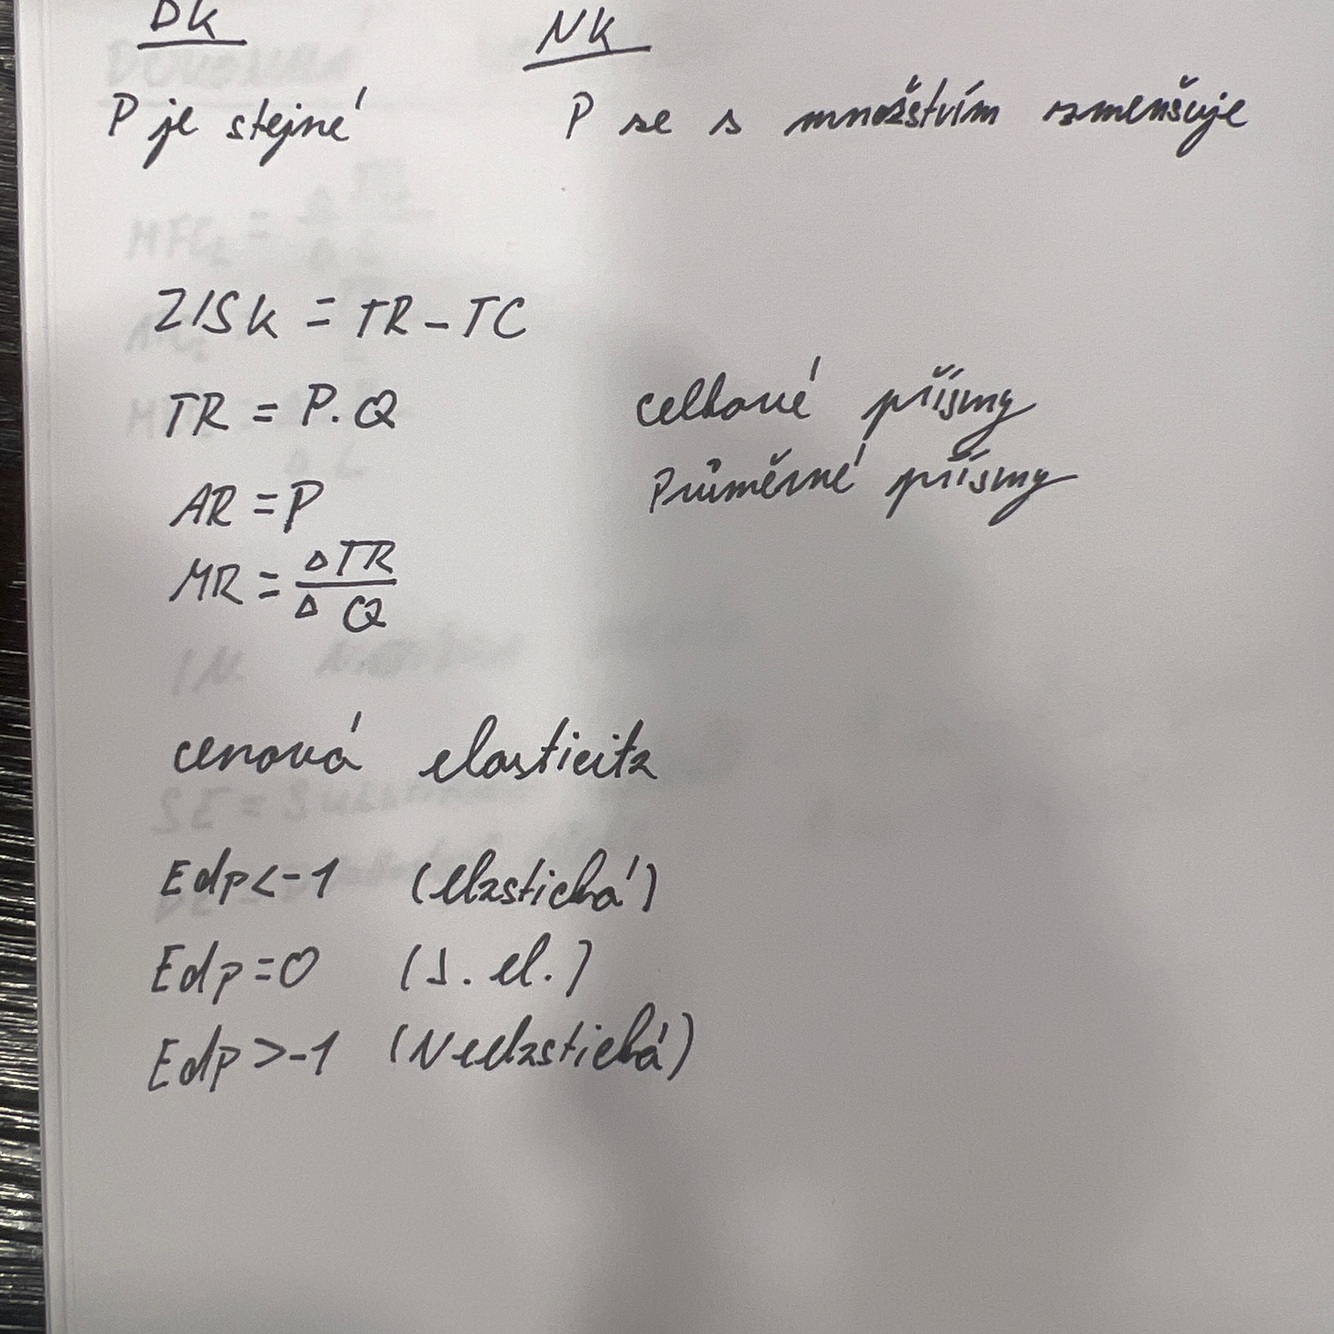 DK NK
P je stejné P se s množstvím zmenšuje
ZISK = TR - TC
TR = P.Q celkové příjmy
AR = P Průměrné příjmy
MR = ΔTR / ΔQ
cenová elasticita
Edp < -1 (elastická)
Edp = 0 (J. el.)
Edp > -1 (Neelastická)